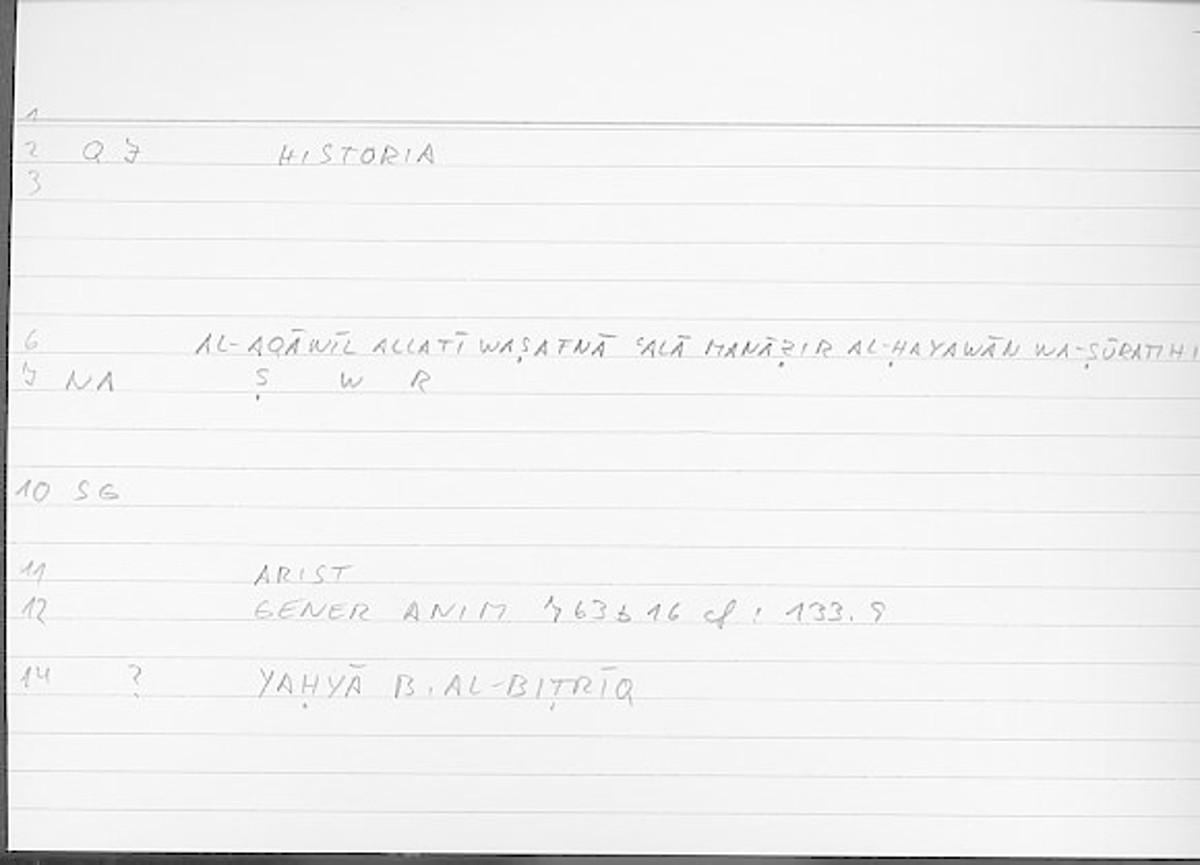 1
2 Q 7 HISTORIA
3
6 AL-AQĀWĪL ALLATĪ WAṢAFNĀ ʿALĀ MANĀẒIR AL-ḤAYAWĀN WA-ṢŪRATIHI
7 NA Ṣ W R
10 SG
11 ARIST
12 GENER ANIM 763b16 cf : 133.9
14 ? YAḤYĀ B. AL-BIṬRĪQ